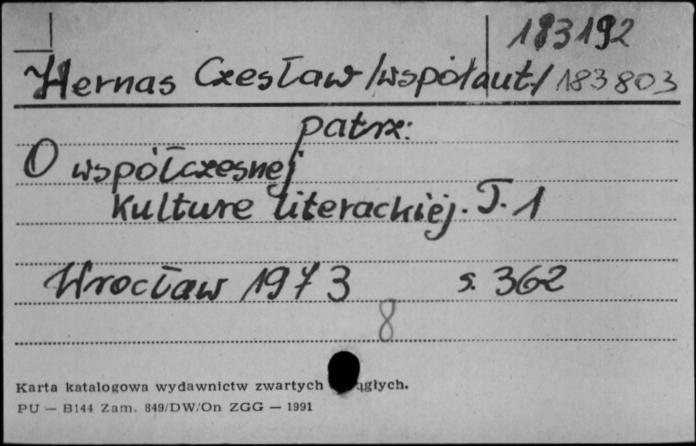 183192
Hernas Czesław /współaut/ 183803
patrz:
O współczesnej
kulturze literackiej. T. 1
Wrocław 1973 s. 362
8
Karta katalogowa wydawnictw zwartych
PU — B144 Zam. 849/DW/On ZGG — 1991